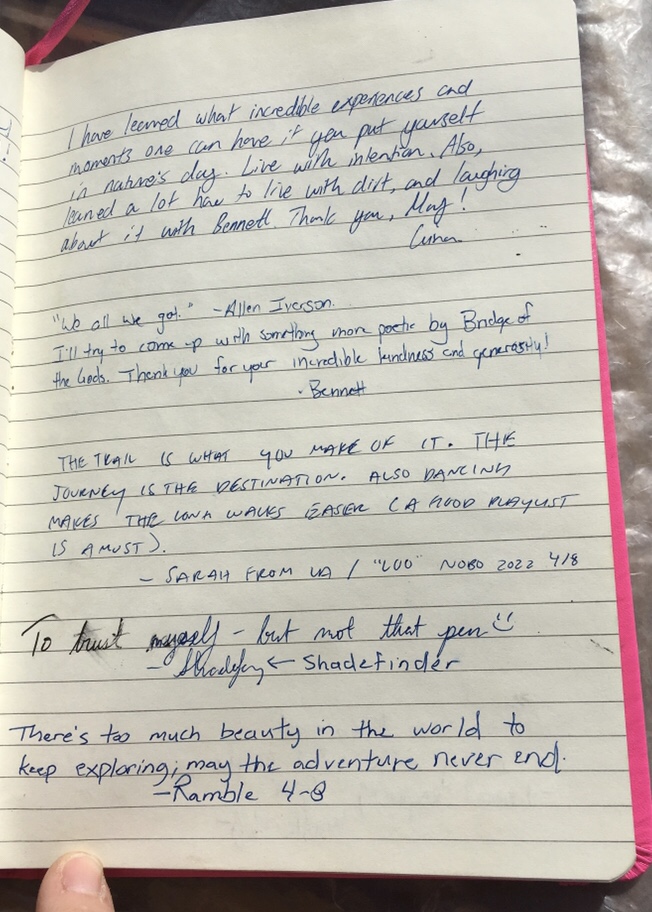 I have learned what incredible experiences and
moments one can have if you put yourself
in nature's day. Live with intention. Also,
learned a lot how to live with dirt, and laughing
about it with Bennett. Thank you, May!
"We all we got." -Allen Iverson.
I'll try to come up with something more poetic by Bridge of
the Gods. Thank you for your incredible kindness and generosity!
- Bennett
THE TRAIL IS WHAT YOU MAKE OF IT. THE
JOURNEY IS THE DESTINATION. ALSO DANCING
MAKES THE LONG WALKS EASER (A GOOD PLAYLIST
IS A MUST).
- SARAH FROM LA / "LOO" NOBO 2022 4/8
To trust myself - but not that pen
- ← Shadefinder
There's too much beauty in the world to
keep exploring; may the adventure never end.
-Ramble 4-8